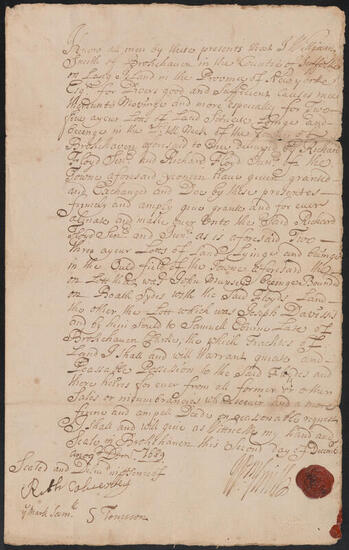 Know all men by these presents that I William
Smith of Brokehaven in the Countie of Suffolke
on Long Island in the Province of New Yorke
Esqr for Divers good and sufficient causes mee
thereunto Moveing and more especially for Two
five ayeur Lots of Land Scituate Lyinge and
beeinge in the Field of the Towne of
Brokehaven aforesaid to mee Delivered by Richard
Floyd Senr and Richard Floyd Junr of the
Towne aforesaid yeomen have given granted
and Exchanged and Doe by these presentes
firmely and amply give grant and for ever
alienate and make over unto the Said Richard
Floyd Senr and Junr as is aforesaid Two
three ayeur Lots of Land Lyinge and beinge
in the Ould field of the Towne aforesaid the
on Lott there was John Beeinge Bounded
on Boath Sydes with the Said Floyds Land
the other, the Lott which was Joseph Davis's
and by him Sould to Samuell Late of
Brokehaven Clarke, the which Tracktes of
Land I Shall and will Warrant quiett and
Peasable Possession to the Said Floydes and
there heires for ever from all former or other
Sales or incumbrances whatsoever and a more
firme and ampell Deed on reasonable request
I shall and will give as Witnesse my hand and
Seale in Brokhaven this Second day of Decemb
anno Dom 1689
Sealed and Delivd
Wm Smith
ye Mark Sam
S Tomeson